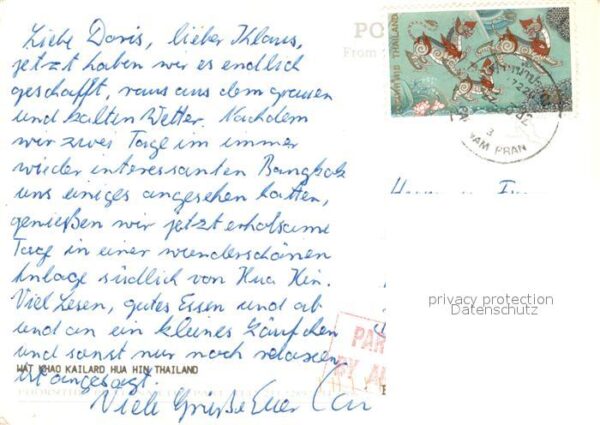 Liebe Doris, lieber Klaus,
jetzt haben wir es endlich
geschafft, raus aus dem grauen
und kalten Wetter. Nachdem
wir zwei Tage im immer
wieder interessanten Bangkok
uns einiges angesehen hatten,
genießen wir jetzt erholsame
Tage in einer wunderschönen
Anlage südlich von Hua Hin.
Viel Lesen, gutes Essen und ab
und an ein kleines Läufchen
und sonst nur noch relaxen
ist angesagt.
Viele Grüße Euer
WAT KHAO KAILARD HUA HIN THAILAND
PO
From
THAILAND
PRAN
PAR
BY A
privacy protection
Datenschutz